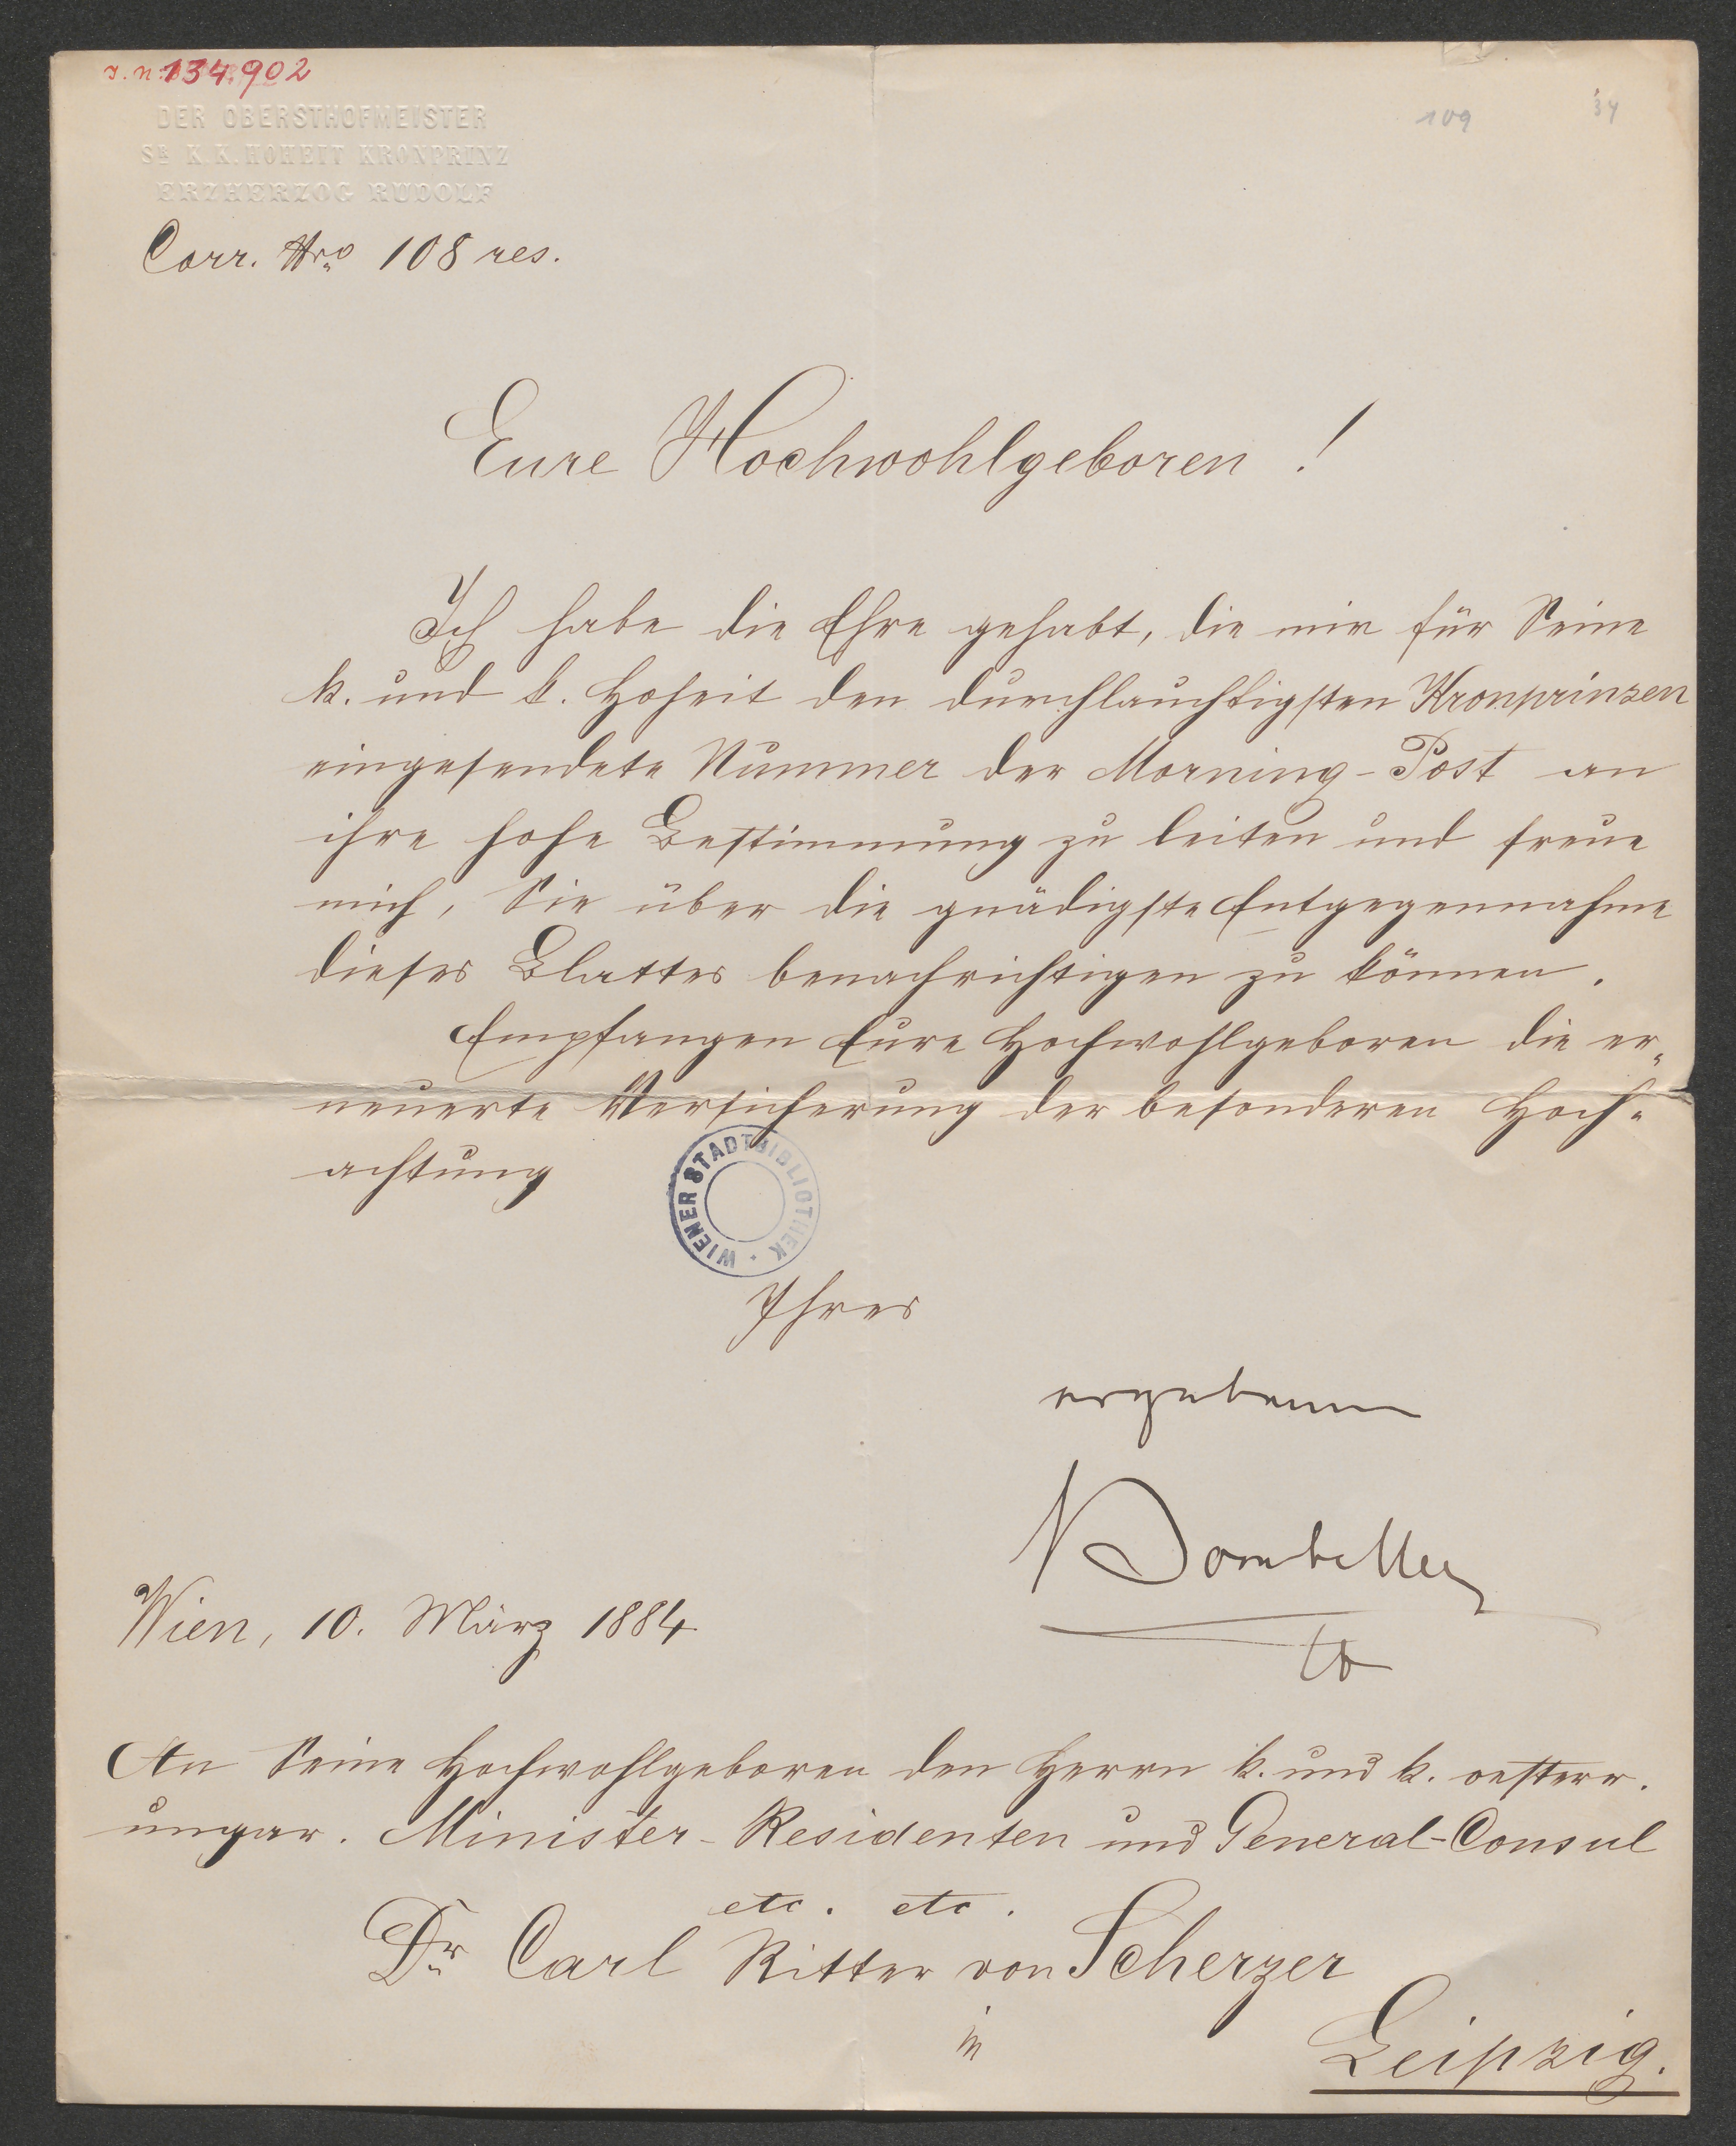 J. N. 134.902
109
34
DER OBERSTHOFMEISTER
SR K. K. HOHEIT KRONPRINZ
ERZHERZOG RUDOLF
Corr. Nro 108 res.
Eure Hochwohlgeboren !
Ich habe die Ehre gehabt, die mir für Seine
k. und k. Hoheit den durchlauchtigsten Kronprinzen
eingesendete Nummer der Morning-Post an
ihre hohe Bestimmung zu leiten und freue
mich, Sie über die gnädigste Entgegennahme
dieses Blattes benachrichtigen zu können.
Empfangen Eure Hochwohlgeboren die er-
neuerte Versicherung der besonderen Hoch-
achtung
WIENER STADTBIBLIOTHEK
Ihres
ergebenen
Bombelles
Wien, 10. März 1884
An Seine Hochwohlgeboren den Herrn k. und k. oesterr.
ungar. Minister-Residenten und General-Consul
etc. etc.
Dr Carl Ritter von Scherzer
in
Leipzig.